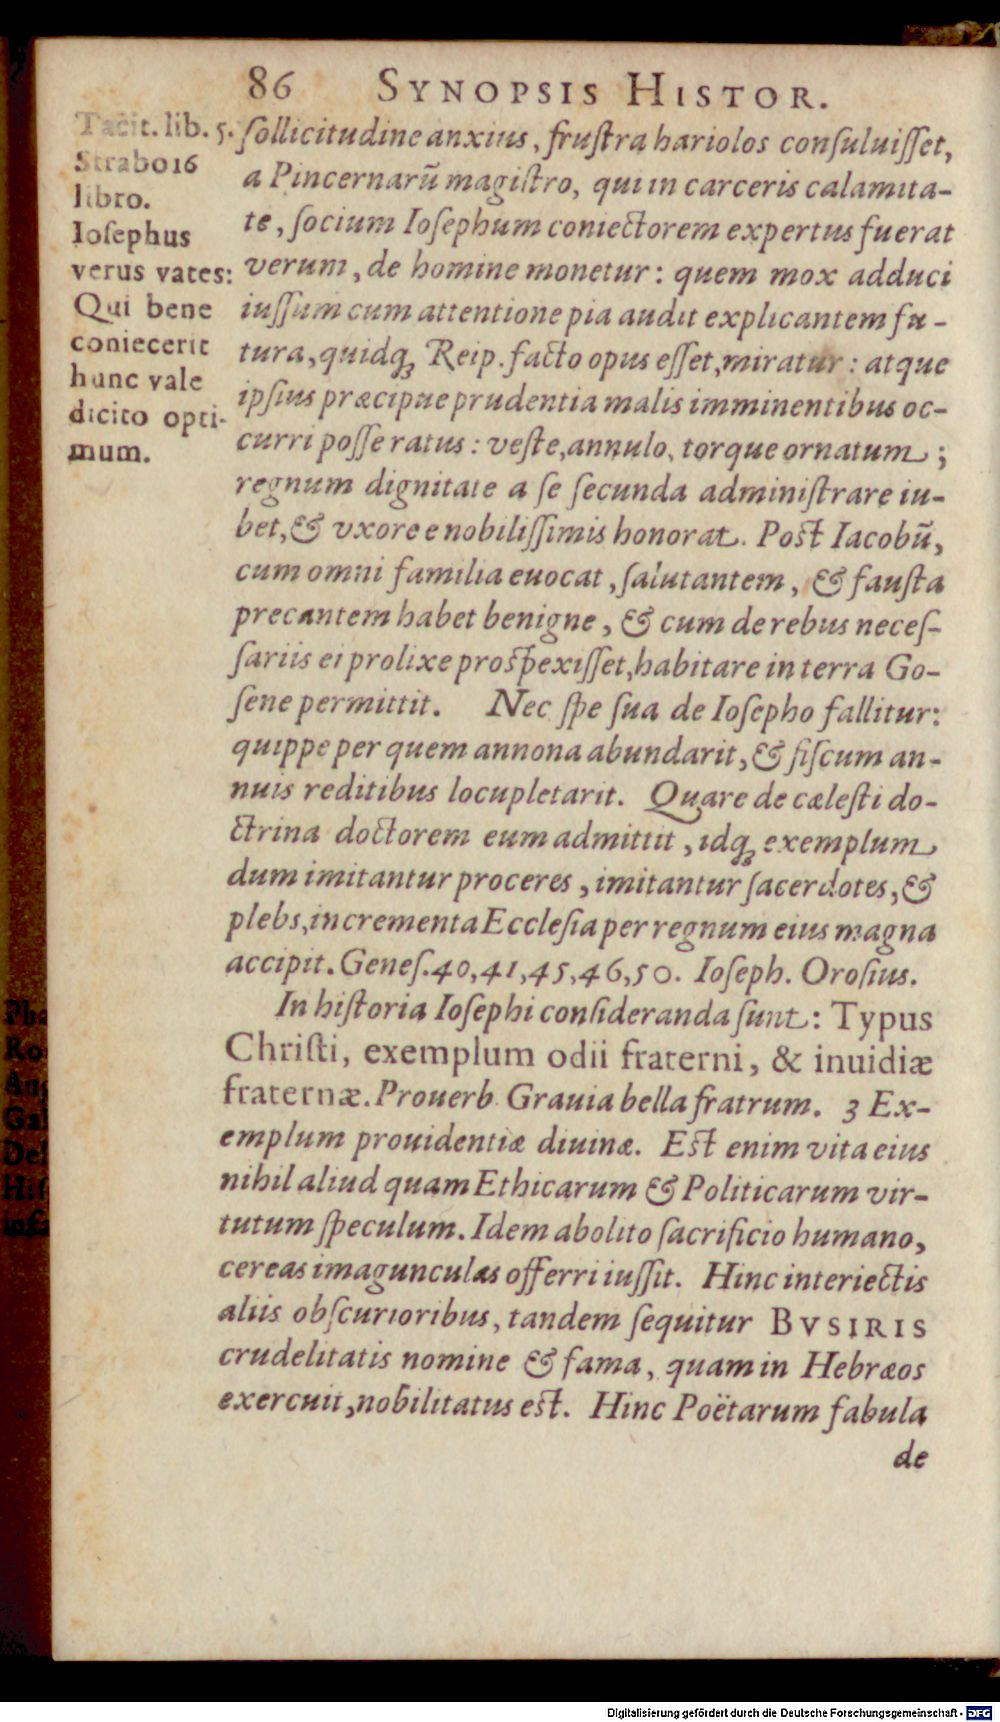 86 SYNOPSIS HISTOR.
Tacit. lib. 5.
Strabo 16
libro.
Ioſephus
verus vates:
Qui bene
coniecerit
hunc vale
dicito opti-
mum.
ſollicitudine anxius, fruſtra hariolos conſuluiſſet,
a Pincernarũ magiſtro, qui in carceris calamita-
te, ſocium Ioſephum coniectorem expertus fuerat
verum, de homine monetur: quem mox adduci
iuſſum cum attentione pia audit explicantem fu-
tura, quidq; Reip. facto opus eſſet, miratur: atque
ipſius præcipue prudentia malis imminentibus oc-
curri poſſe ratus: veſte, annulo, torque ornatum;
regnum dignitate a ſe ſecunda adminiſtrare iu-
bet, & vxore e nobiliſſimis honorat. Post Iacobũ,
cum omni familia euocat, ſalutantem, & fauſta
precantem habet benigne, & cum de rebus neceſ-
ſariis ei prolixe proſpexiſſet, habitare in terra Go-
ſene permittit. Nec ſpe ſua de Ioſepho fallitur:
quippe per quem annona abundarit, & fiſcum an-
nuis reditibus locupletarit. Quare de cæleſti do-
ctrina doctorem eum admittit, idq; exemplum
dum imitantur proceres, imitantur ſacerdotes, &
plebs, incrementa Eccleſia per regnum eius magna
accipit. Geneſ. 40, 41, 45, 46, 50. Ioſeph. Oroſius.
In hiſtoria Ioſephi conſideranda ſunt: Typus
Chriſti, exemplum odii fraterni, & inuidiæ
fraternæ. Prouerb. Grauia bella fratrum. 3 Ex-
emplum prouidentiæ diuinæ. Est enim vita eius
nihil aliud quam Ethicarum & Politicarum vir-
tutum ſpeculum. Idem abolito ſacrificio humano,
cereas imagunculas offerri iuſſit. Hinc interiectis
aliis obſcurioribus, tandem ſequitur BVSIRIS
crudelitatis nomine & fama, quam in Hebræos
exercuit, nobilitatus est. Hinc Poëtarum fabula
de
Digitalisierung gefördert durch die Deutsche Forschungsgemeinschaft - DFG